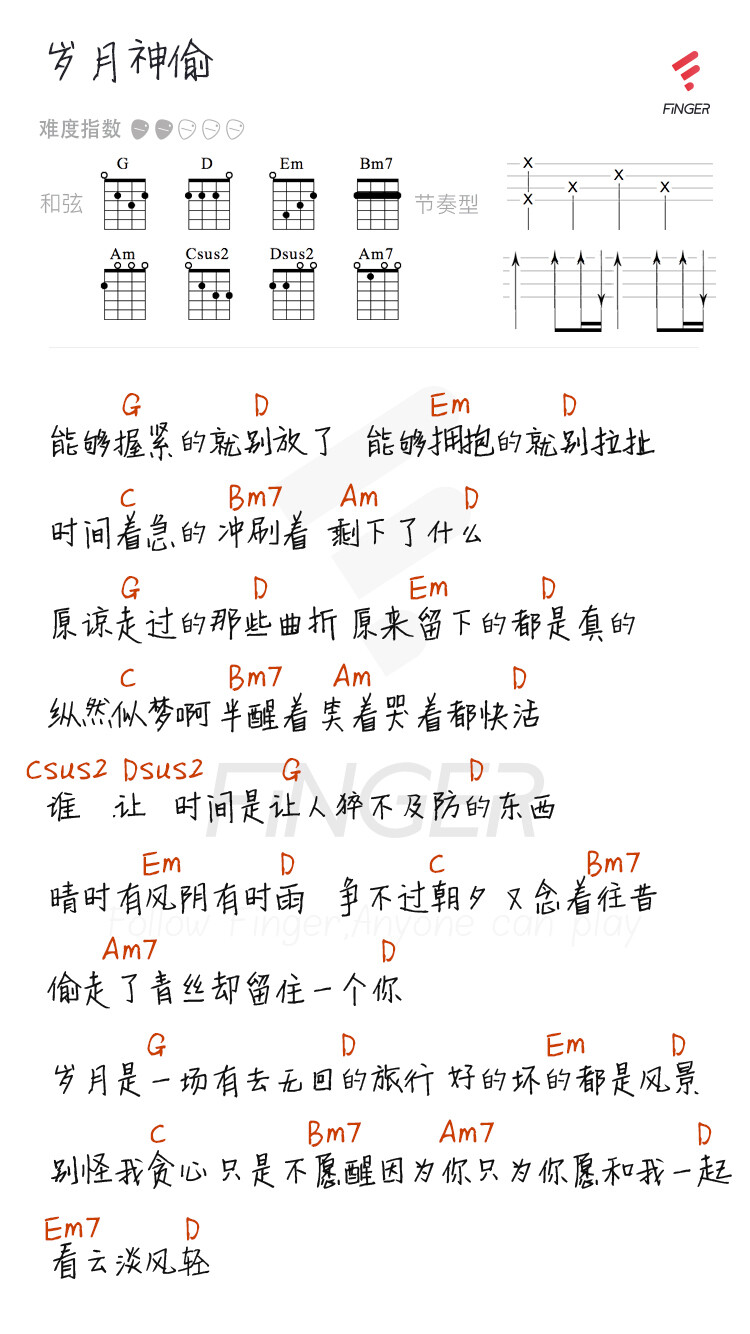 岁月神偷
FiNGER
难度指数
和弦
G D Em Bm7
节奏型
Am Csus2 Dsus2 Am7
G D Em D
能够握紧的就别放了 能够拥抱的就别拉扯
C Bm7 Am D
时间着急的 冲刷着 剩下了什么
G D Em D
原谅走过的那些曲折 原来留下的都是真的
C Bm7 Am D
纵然似梦啊 半醒着 笑着哭着都快活
Csus2 Dsus2 G D
谁 让 时间是让人猝不及防的东西
Em D C Bm7
晴时有风阴有时雨 争不过朝夕 又念着往昔
Am7 D
偷走了青丝却留住一个你
G D Em D
岁月是一场有去无回的旅行 好的坏的都是风景
C Bm7 Am7 D
别怪我贪心 只是不愿醒因为你只为你愿和我一起
Em7 D
看云淡风轻
FiNGER
Follow Finger,Anyone can play